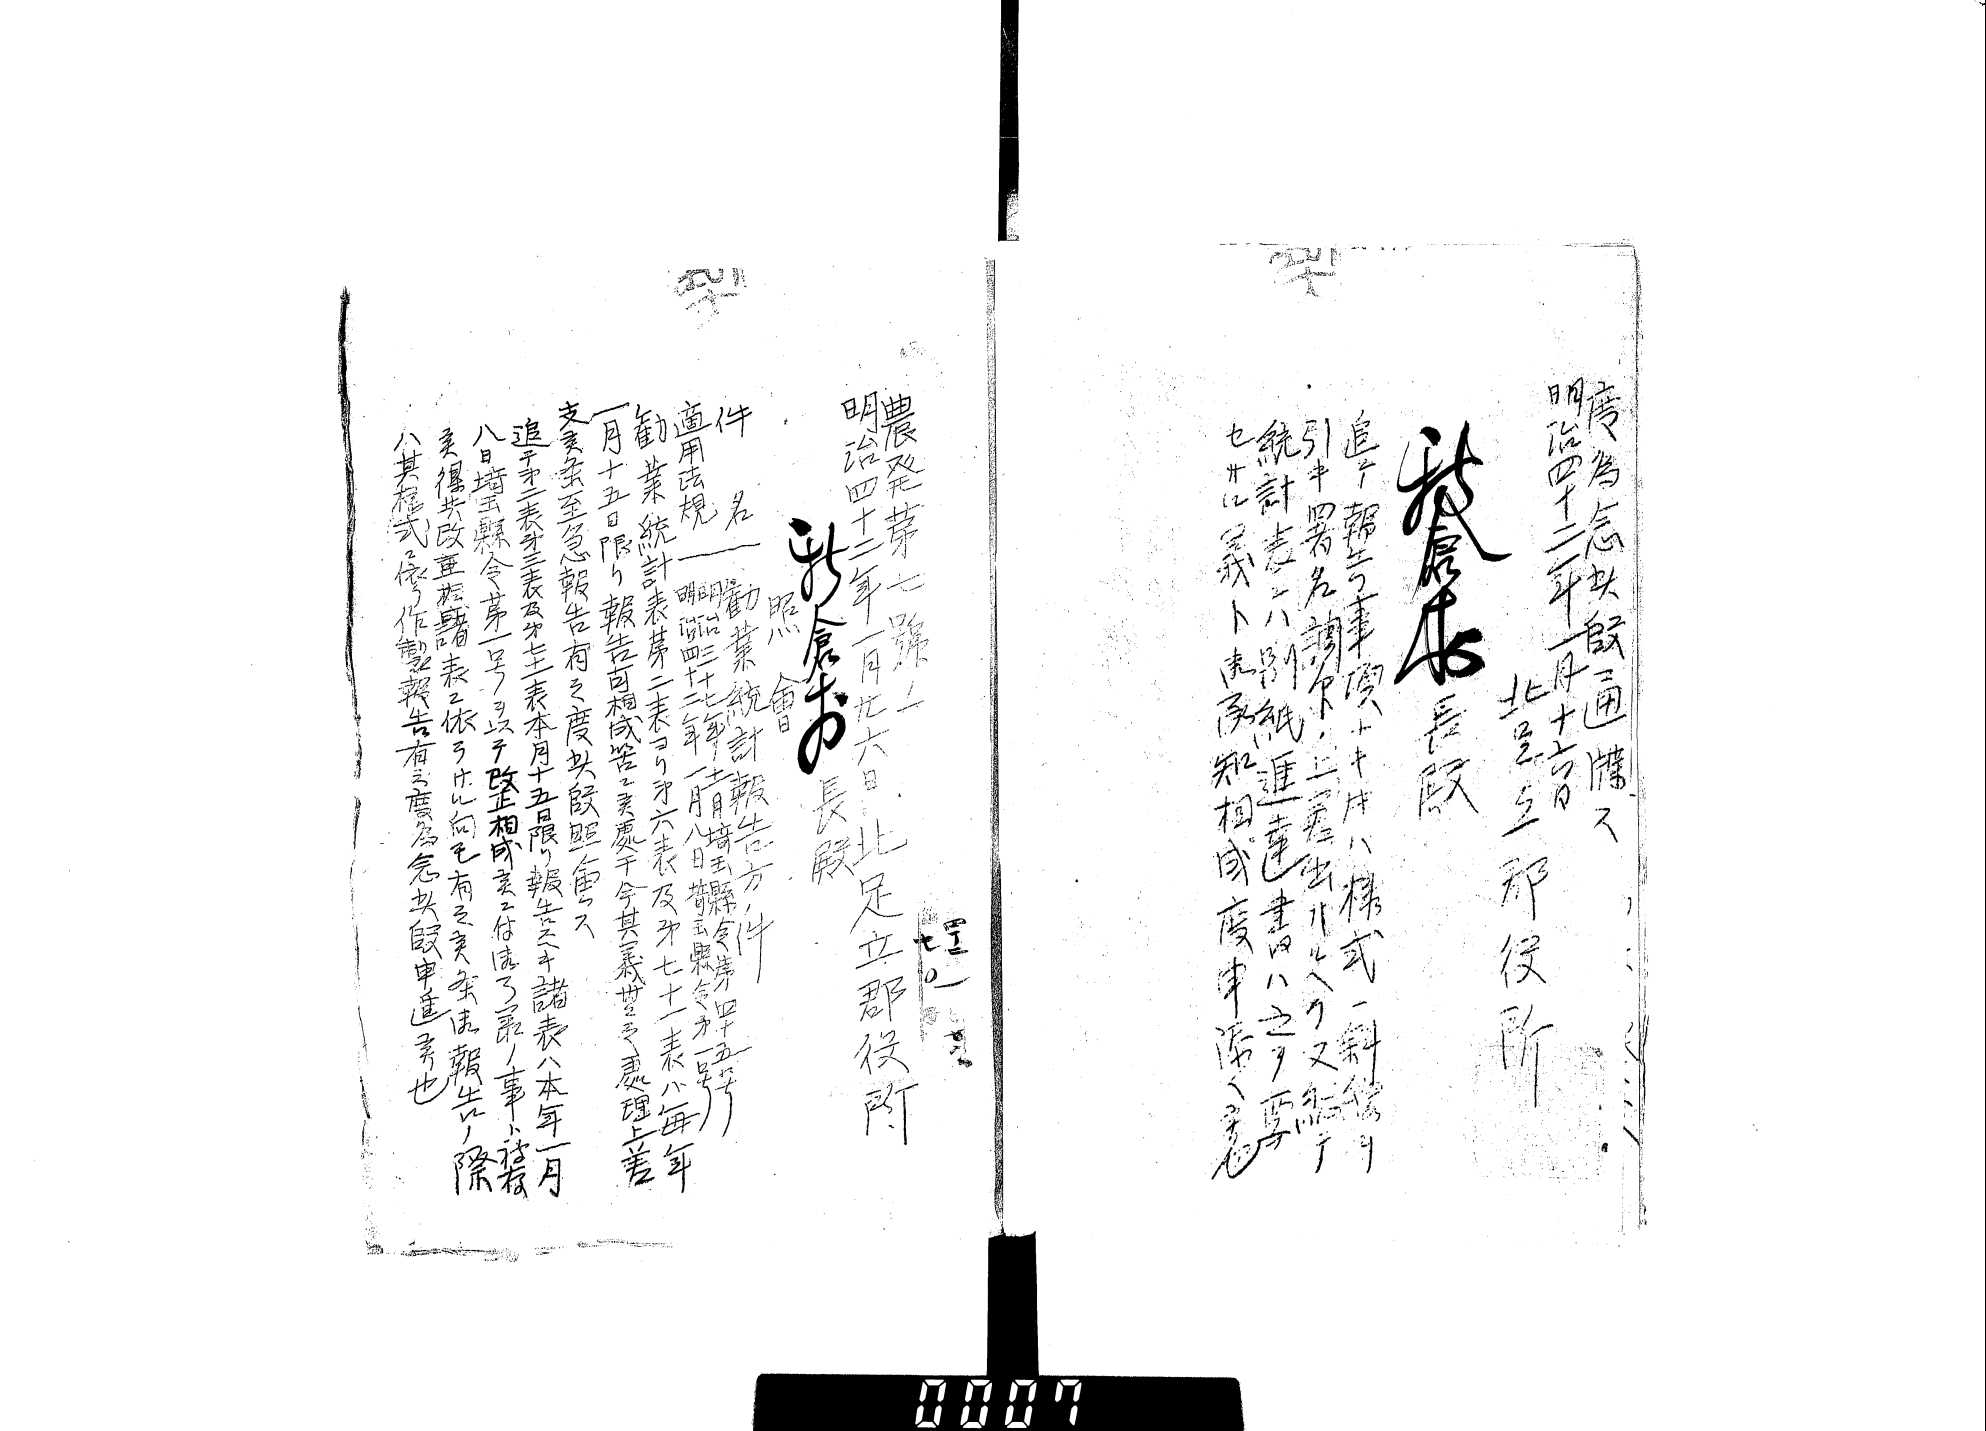 度為念此段通牒ス
明治四十二年一月十六日
北足立郡役所
新倉村長殿
追テ報告ノ事項ナキ時ハ様式ニ斜線ヲ
引キ署名調印ノ上差出スヘク又
統計表ニハ別紙進達書ハ之ヲ要
セサル義ト御承知相成度申添ヘ候也
農発第七號ノ一
明治四十二年一月廿六日 北足立郡役所
新倉村長殿
照會
件名 勸業統計報告方ノ件
適用法規 明治三十七年十一月埼玉縣令第四十五号
明治四十二年一月八日埼玉縣令第一号
勧業統計表第二表ヨリ第六表及第七十一表ハ毎年
一月十五日限リ報告可相成筈ニ候處于今其義無之處理上差
支候条至急報告有之度此段照會ス
追テ第二表第三表及第七十一表本月十五日限リ報告スヘキ諸表ハ本年一月
八日埼玉縣令第一号ヲ以テ改正相成候ニ付御了知ノ事ト被存
候得共改正前諸表ニ依リ候向モ有之候条御報告ノ際
ハ其様式ニ依リ作製報告有之度為念此段申進候也